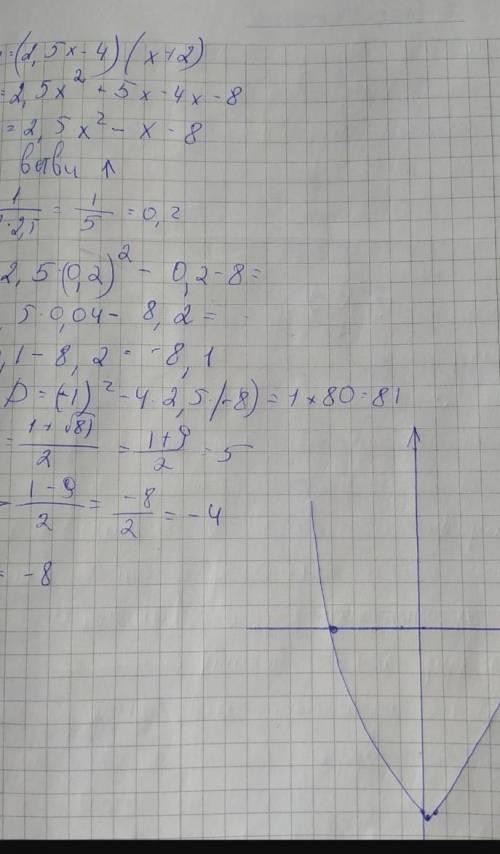 =(2,5x-4)(x+2)
=2,5x² + 5x - 4x - 8
=2,5x² - x - 8
1/(·2,5) = 1/5 = 0,2
2,5·(0,2)² - 0,2-8=
5·0,04 - 8,2 =
,1 - 8,2 = -8,1
D = (-1)² - 4·2,5·(-8) = 1+80=81
= (1+√81)/2 = (1+9)/2 = 5
(1-9)/2 = -8/2 = -4
= -8